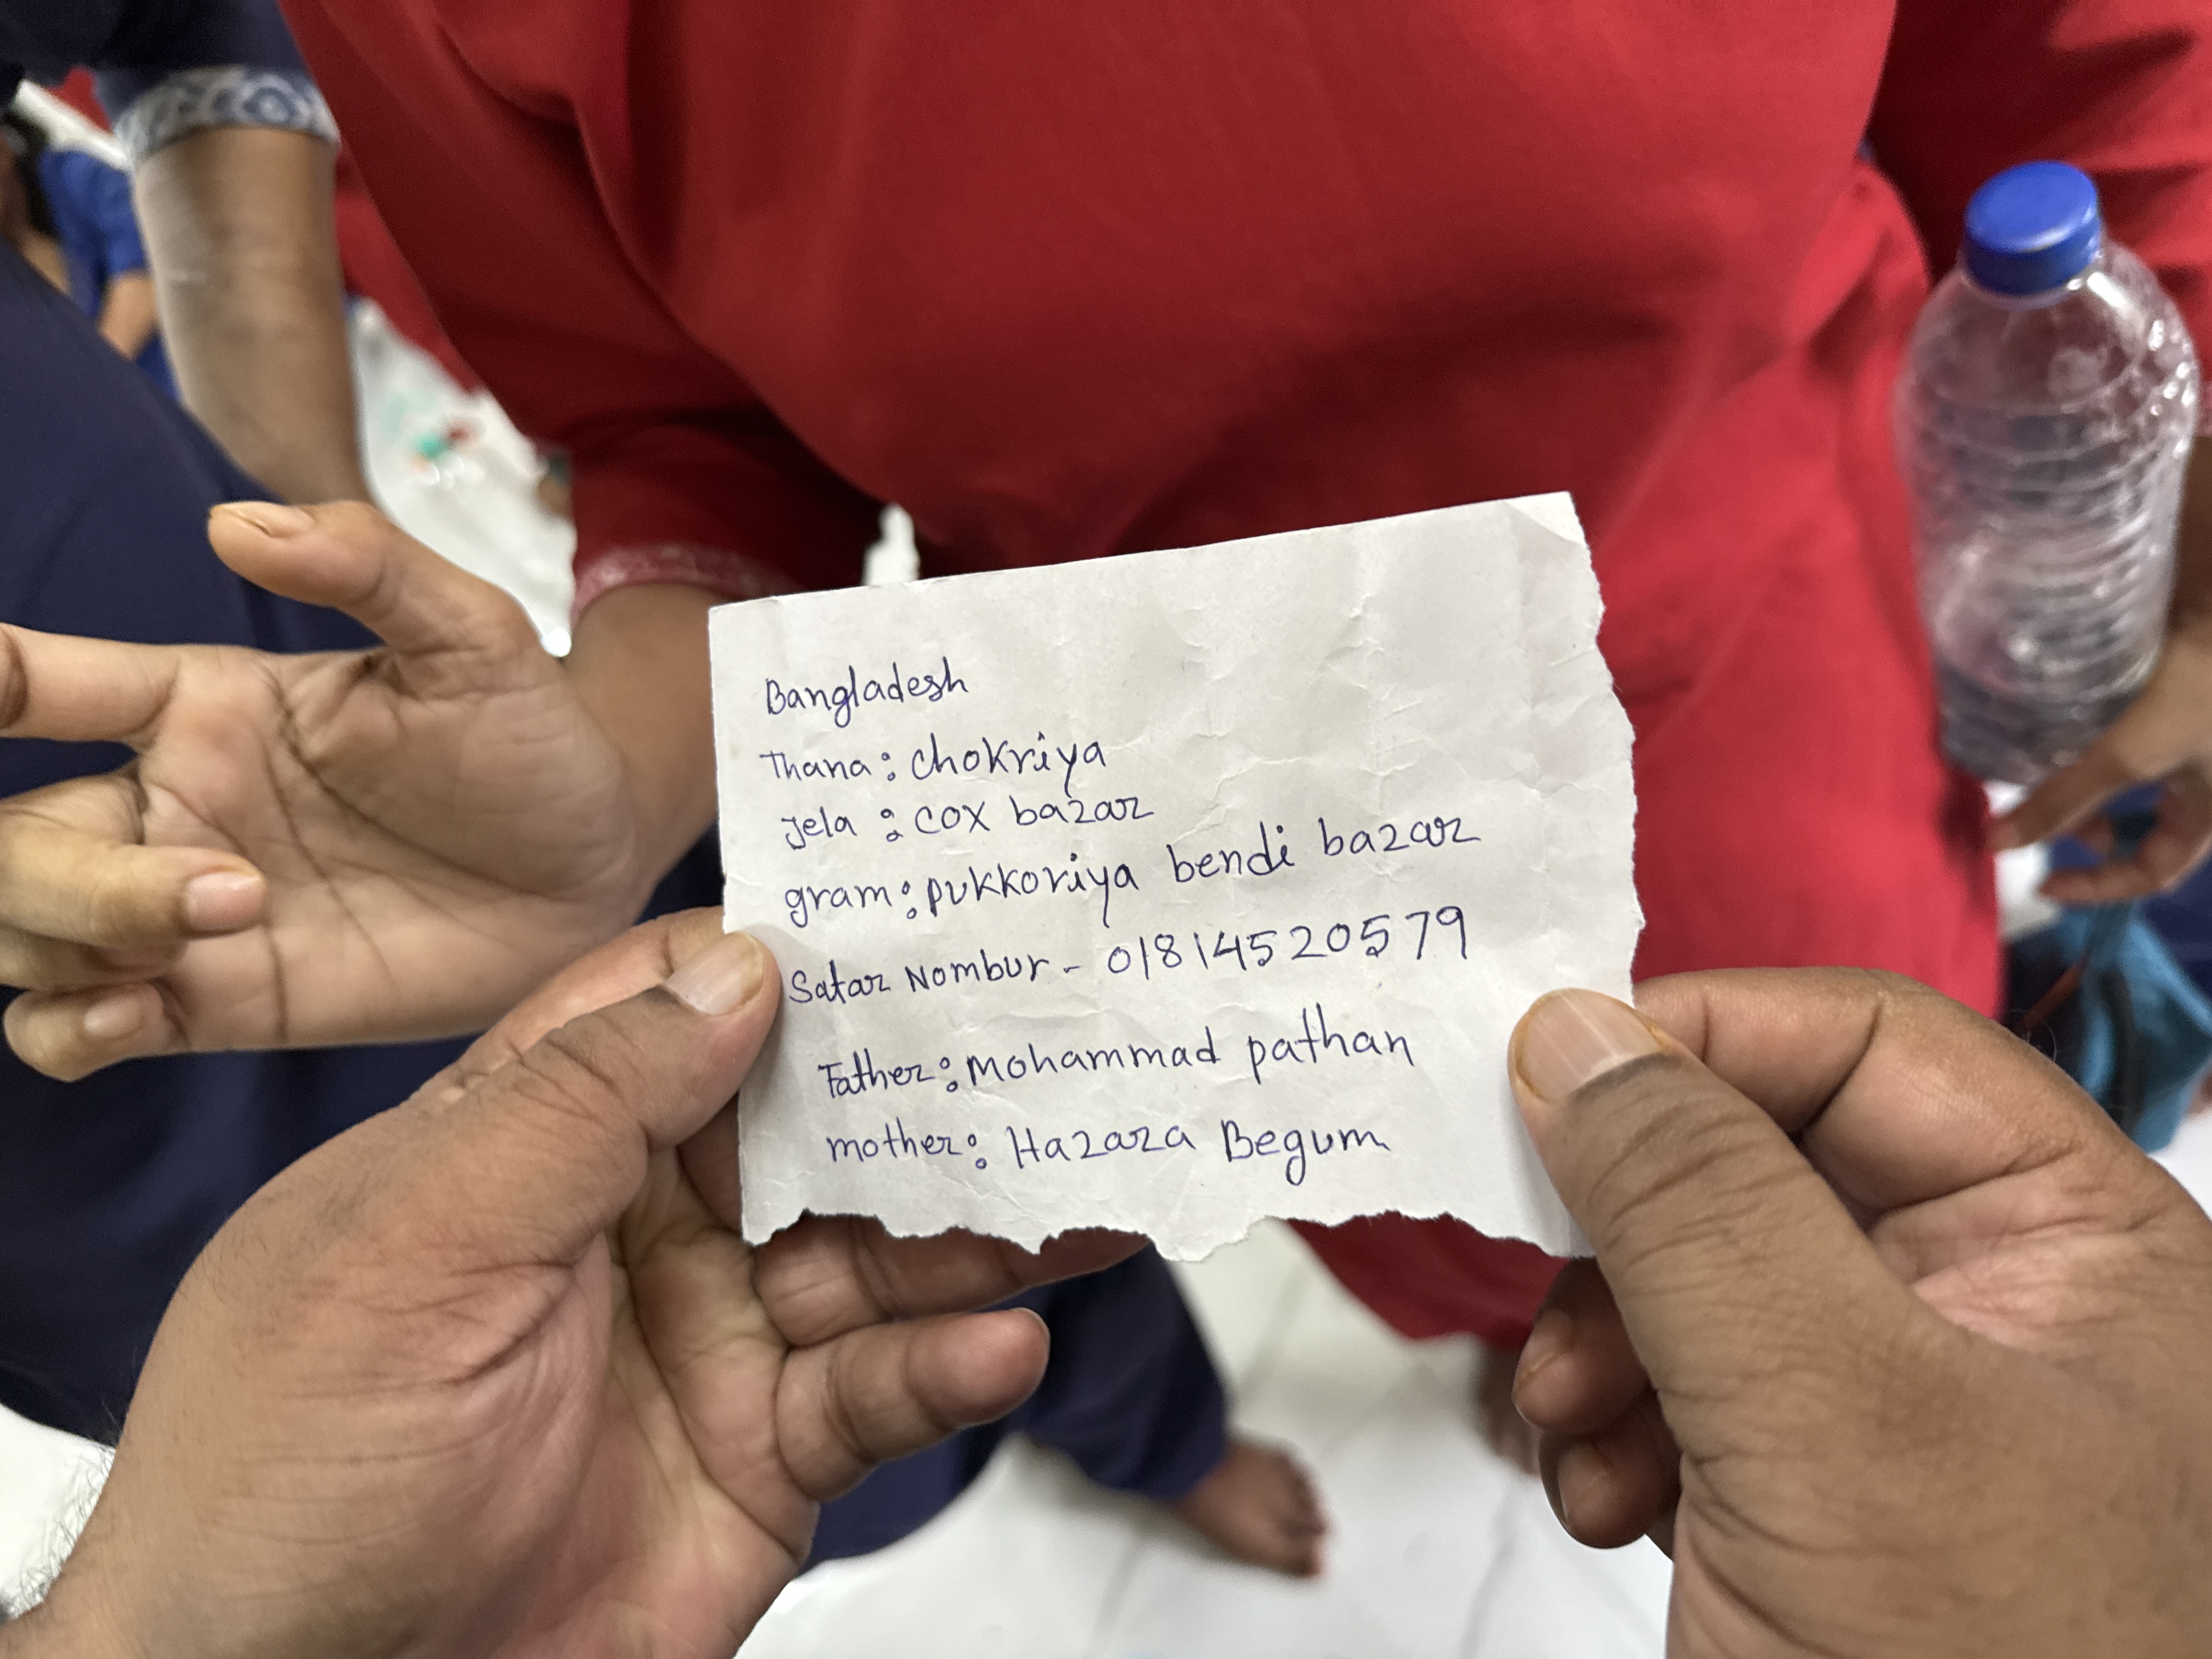 Bangladesh
Thana: chokriya
Jela : cox bazar
gram: pukkoriya bendi bazar
Satar Nombur - 01814520579
Father: Mohammad pathan
mother: Hazara Begum